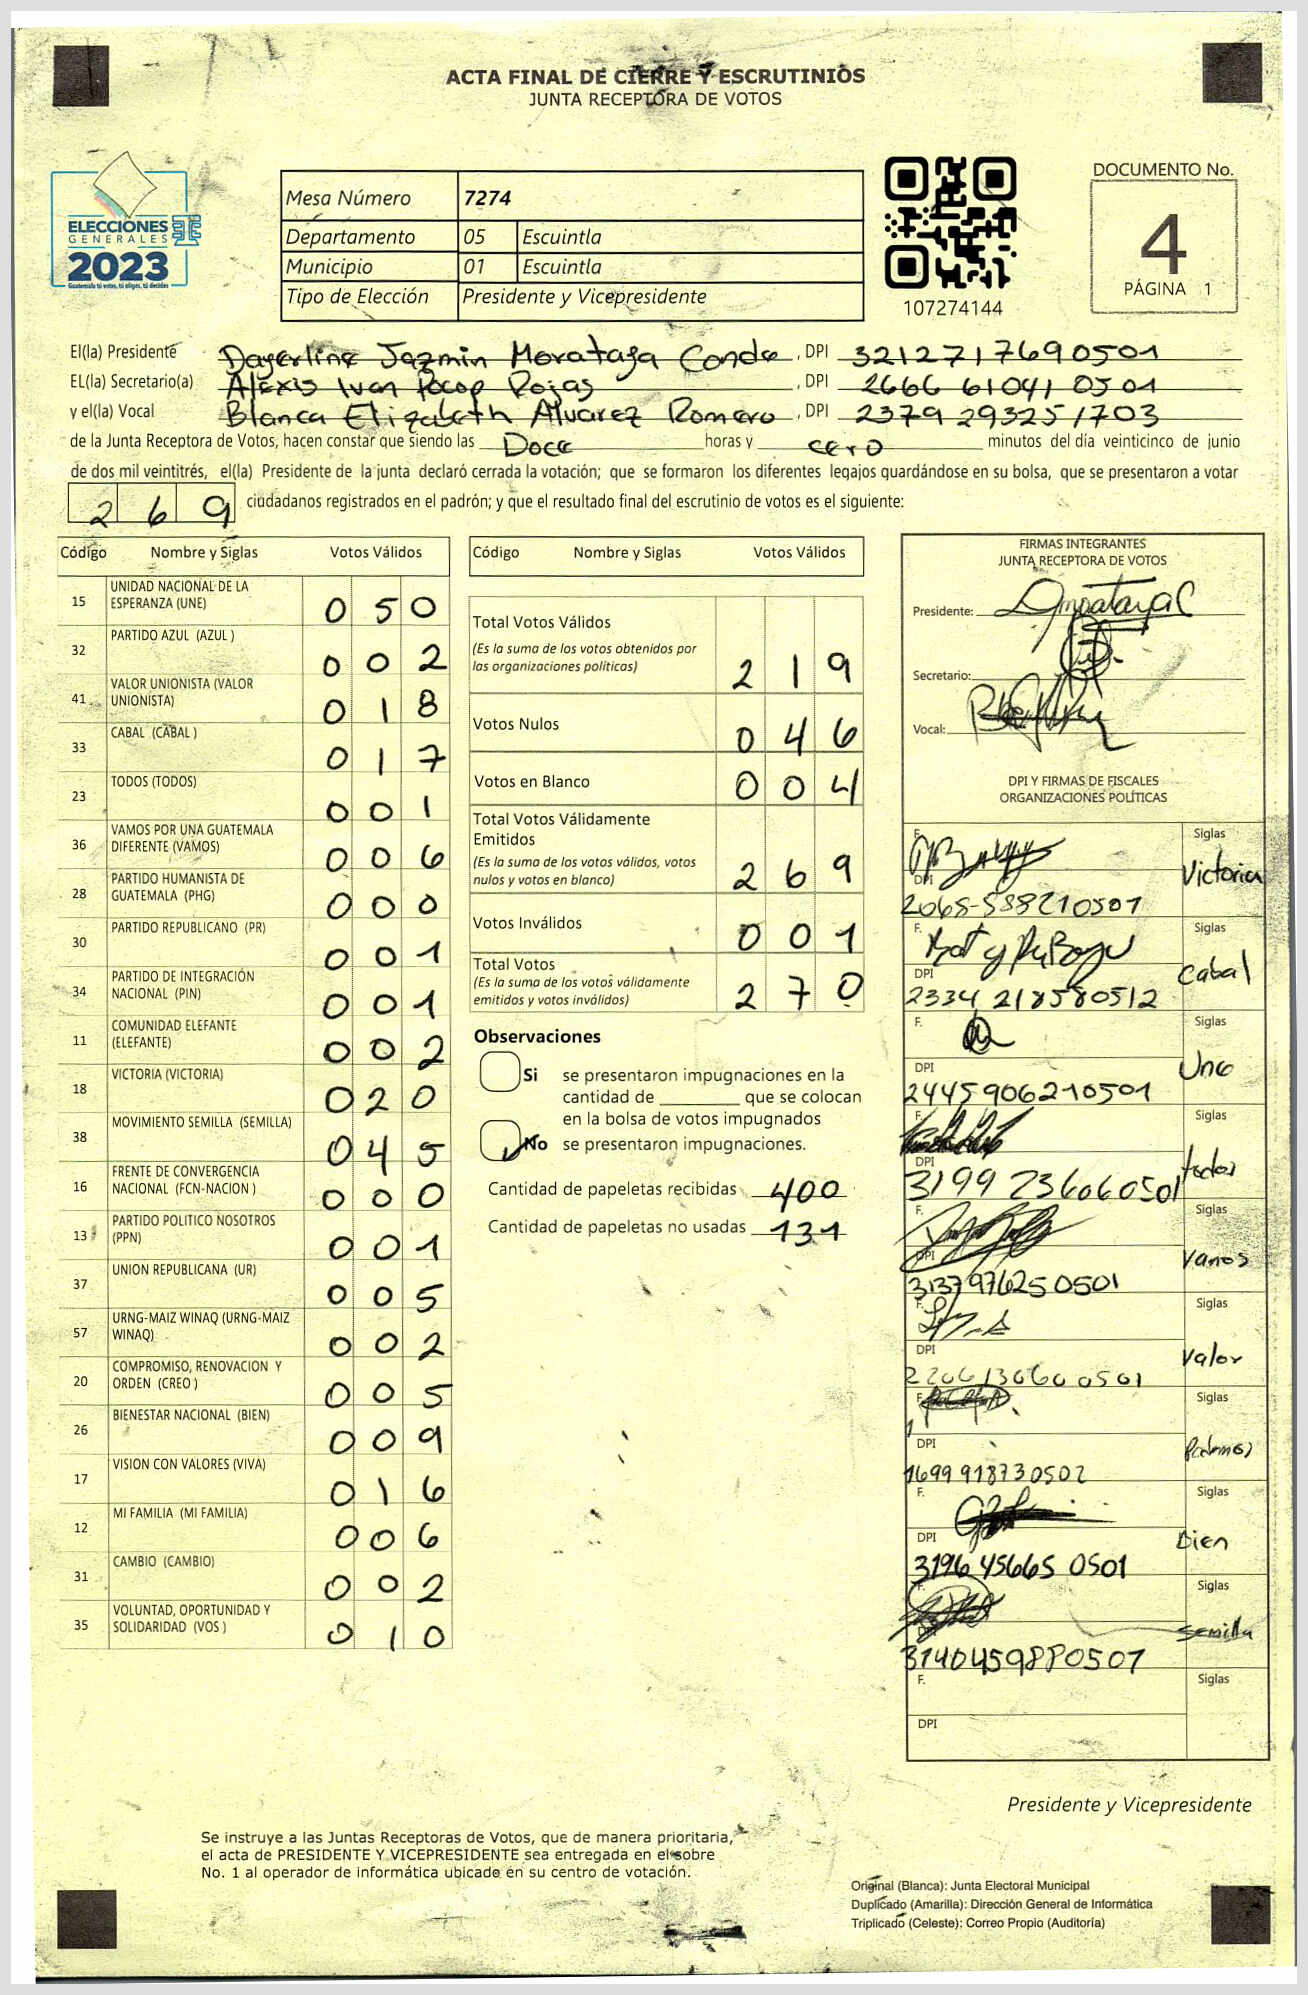 ACTA FINAL DE CIERRE Y ESCRUTINIOS
JUNTA RECEPTORA DE VOTOS
ELECCIONES
GENERALES
2023
Guatemala tú votas, tú eliges, tú decides
Mesa Número 7274
Departamento 05 Escuintla
Municipio 01 Escuintla
Tipo de Elección Presidente y Vicepresidente
107274144
DOCUMENTO No.
4
PÁGINA 1
El(la) Presidente Dayerline Jazmin Morataya Conde, DPI 3212717690501
EL(la) Secretario(a) Alexis Ivan Pocop Rojas, DPI 2666 61041 0501
y el(la) Vocal Blanca Elizabeth Alvarez Romero, DPI 2379 293251703
de la Junta Receptora de Votos, hacen constar que siendo las Doce horas y cero minutos del día veinticinco de junio
de dos mil veintitrés, el(la) Presidente de la junta declaró cerrada la votación; que se formaron los diferentes legajos guardándose en su bolsa, que se presentaron a votar
269 ciudadanos registrados en el padrón; y que el resultado final del escrutinio de votos es el siguiente:
Código Nombre y Siglas Votos Válidos
15 UNIDAD NACIONAL DE LA ESPERANZA (UNE) 050
32 PARTIDO AZUL (AZUL ) 002
41 VALOR UNIONISTA (VALOR UNIONISTA) 018
33 CABAL (CABAL ) 017
23 TODOS (TODOS) 001
36 VAMOS POR UNA GUATEMALA DIFERENTE (VAMOS) 006
28 PARTIDO HUMANISTA DE GUATEMALA (PHG) 000
30 PARTIDO REPUBLICANO (PR) 001
34 PARTIDO DE INTEGRACIÓN NACIONAL (PIN) 001
11 COMUNIDAD ELEFANTE (ELEFANTE) 002
18 VICTORIA (VICTORIA) 020
38 MOVIMIENTO SEMILLA (SEMILLA) 045
16 FRENTE DE CONVERGENCIA NACIONAL (FCN-NACION ) 000
13 PARTIDO POLITICO NOSOTROS (PPN) 001
37 UNION REPUBLICANA (UR) 005
57 URNG-MAIZ WINAQ (URNG-MAIZ WINAQ) 002
20 COMPROMISO, RENOVACION Y ORDEN (CREO ) 005
26 BIENESTAR NACIONAL (BIEN) 009
17 VISION CON VALORES (VIVA) 016
12 MI FAMILIA (MI FAMILIA) 006
31 CAMBIO (CAMBIO) 002
35 VOLUNTAD, OPORTUNIDAD Y SOLIDARIDAD (VOS ) 010
Código Nombre y Siglas Votos Válidos
Total Votos Válidos 219
(Es la suma de los votos obtenidos por
las organizaciones políticas)
Votos Nulos 046
Votos en Blanco 004
Total Votos Válidamente
Emitidos 269
(Es la suma de los votos válidos, votos
nulos y votos en blanco)
Votos Inválidos 001
Total Votos 270
(Es la suma de los votos válidamente
emitidos y votos inválidos)
Observaciones
Si se presentaron impugnaciones en la
cantidad de ________ que se colocan
en la bolsa de votos impugnados
No se presentaron impugnaciones.
Cantidad de papeletas recibidas 400
Cantidad de papeletas no usadas 131
FIRMAS INTEGRANTES
JUNTA RECEPTORA DE VOTOS
Presidente:
Secretario:
Vocal:
DPI Y FIRMAS DE FISCALES
ORGANIZACIONES POLÍTICAS
F. Siglas Victoria
DPI 2065-588210501
F. Siglas Cabal
DPI 2334 218580512
F. Siglas Une
DPI 2445906210501
F. Siglas todos
DPI 3199 236060501
F. Siglas Vamos
DPI 3137976250501
F. Siglas Valor
DPI 2206130600501
F. Siglas Podemos
DPI 1699 918730502
F. Siglas Bien
DPI 3196 45665 0501
F. Siglas Semilla
DPI 3140459880501
F. Siglas
DPI
Presidente y Vicepresidente
Se instruye a las Juntas Receptoras de Votos, que de manera prioritaria,
el acta de PRESIDENTE Y VICEPRESIDENTE sea entregada en el sobre
No. 1 al operador de informática ubicado en su centro de votación.
Original (Blanca): Junta Electoral Municipal
Duplicado (Amarilla): Dirección General de Informática
Triplicado (Celeste): Correo Propio (Auditoría)